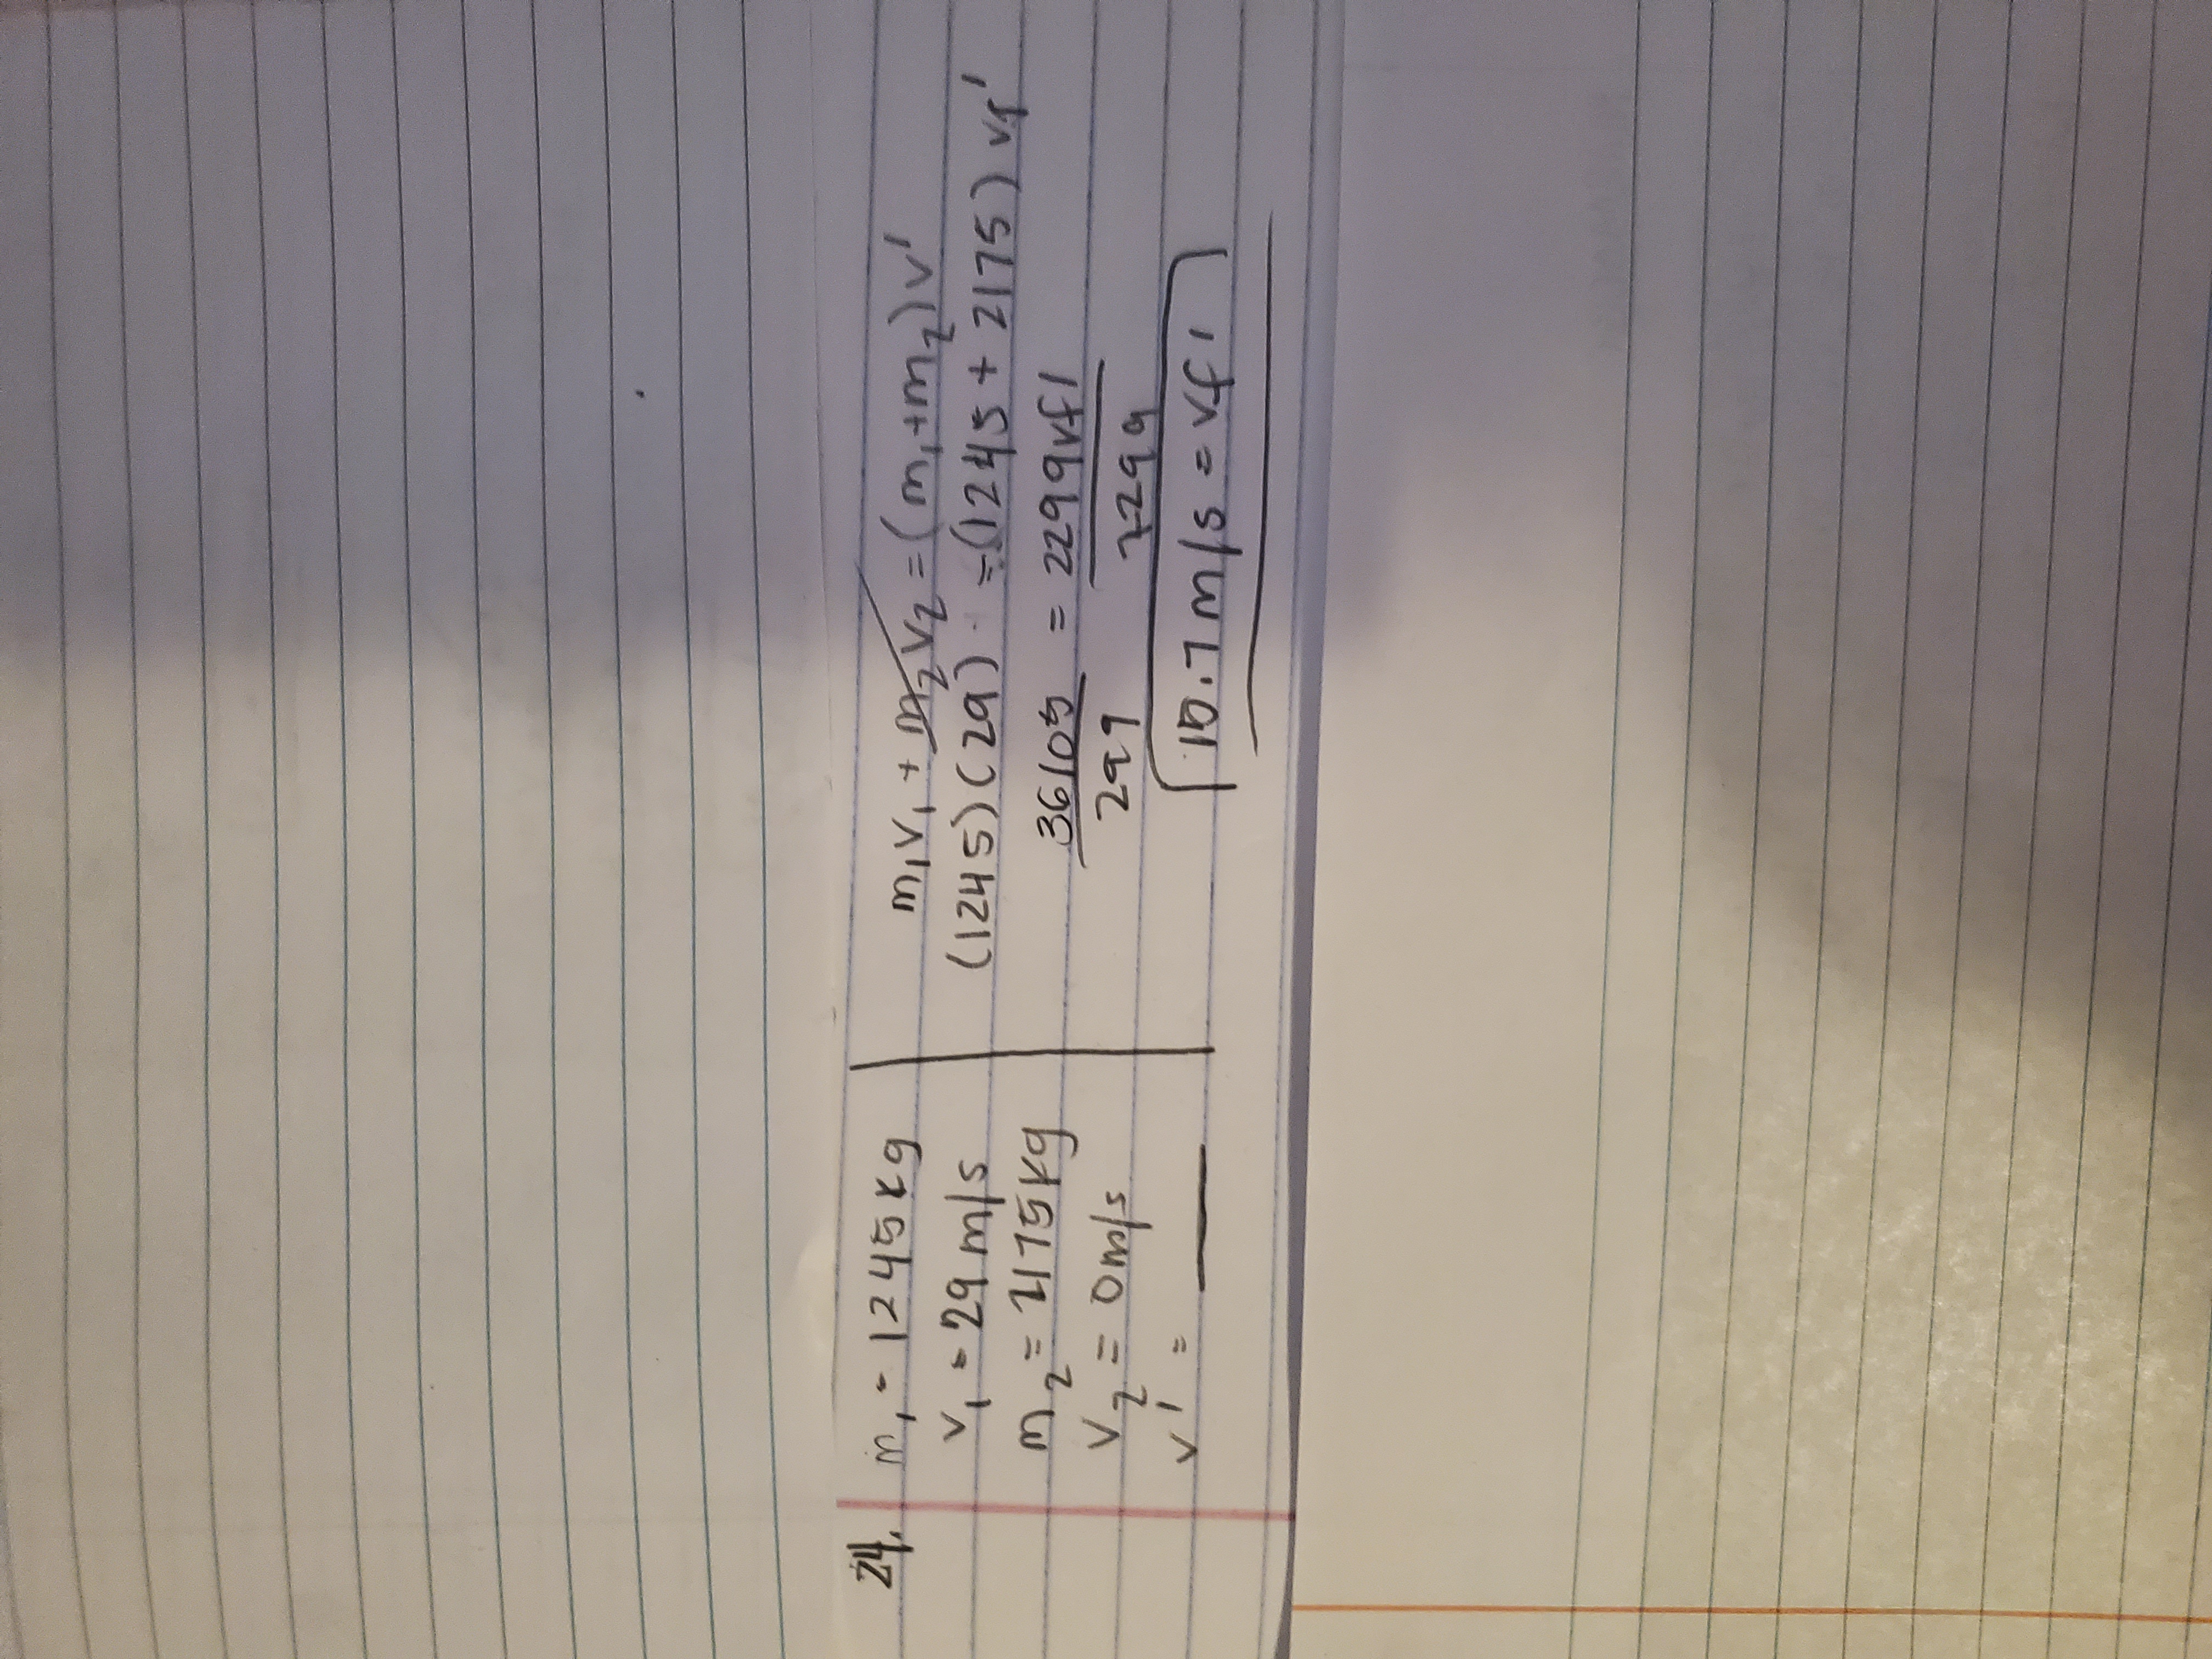 24. m₁ = 1245 kg
v₁ = 29 m/s
m₂ = 2175 kg
v₂ = 0 m/s
v' = ___
m₁v₁ + m₂v₂ = (m₁+m₂)v'
(1245)(29) = (1245 + 2175) vf'
36105 = 2299vf'
2299 2299
15.7 m/s = vf'